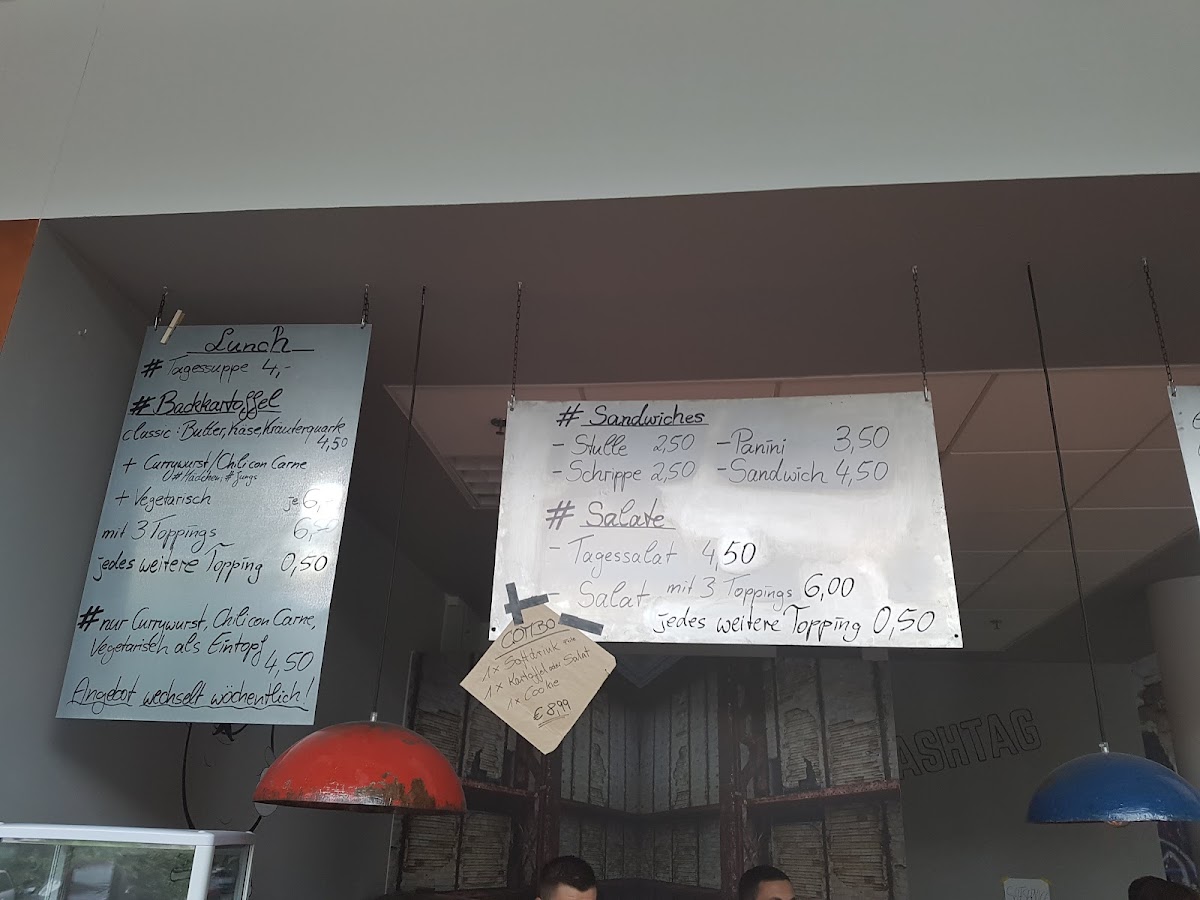 Lunch
# Tagessuppe 4,-
# Backkartoffel
classic: Butter, Käse, Kräuterquark
4,50
+ Currywurst/Chili con Carne
+ Vegetarisch je 6,-
mit 3 Toppings 6,50
jedes weitere Topping 0,50
# nur Currywurst, Chili con Carne,
Vegetarisch als Eintopf
4,50
Angebot wechselt wöchentlich!
# Sandwiches
- Stulle 2,50 - Panini 3,50
- Schrippe 2,50 - Sandwich 4,50
# Salate
- Tagessalat 4,50
- Salat mit 3 Toppings 6,00
jedes weitere Topping 0,50
COMBO
1x Softdrink
1x Kartoffel oder Salat
1x Cookie
€ 8,99
ASHTAG